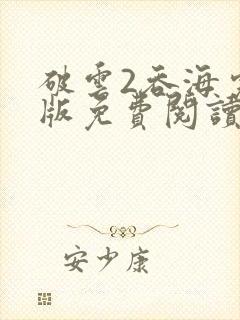 破雲2吞海完
版免費閱讀
安少康